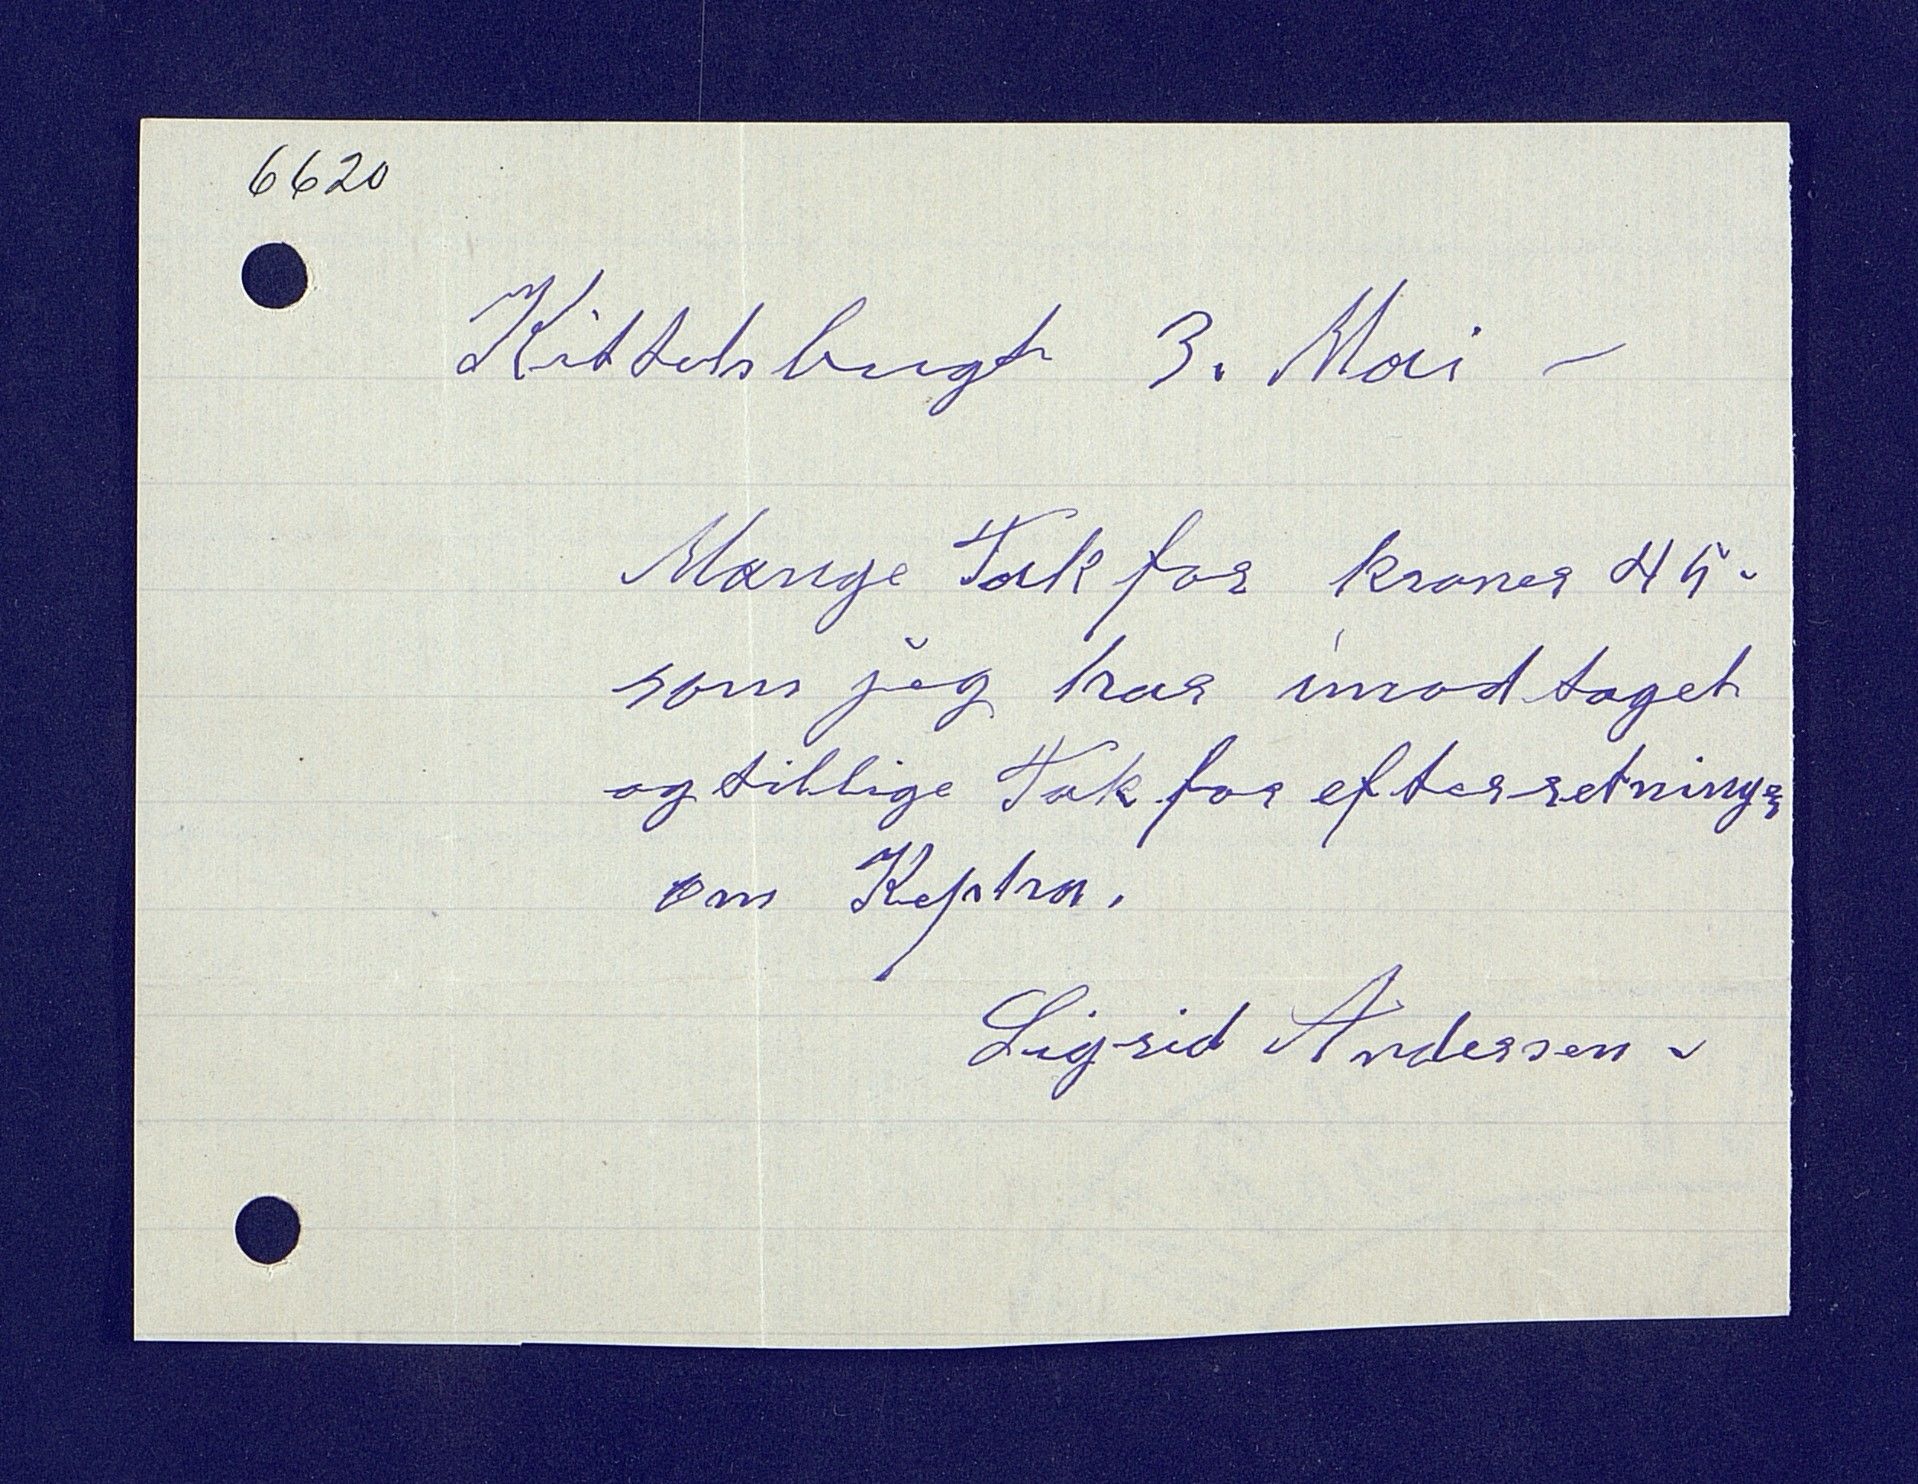 6620
Kittelsbugt 3. Mai –
Mange Tak for kroner 45.
som jeg har imodtaget
og tillige Tak for efterretninger
om Keptra.
Sigrid Andersen